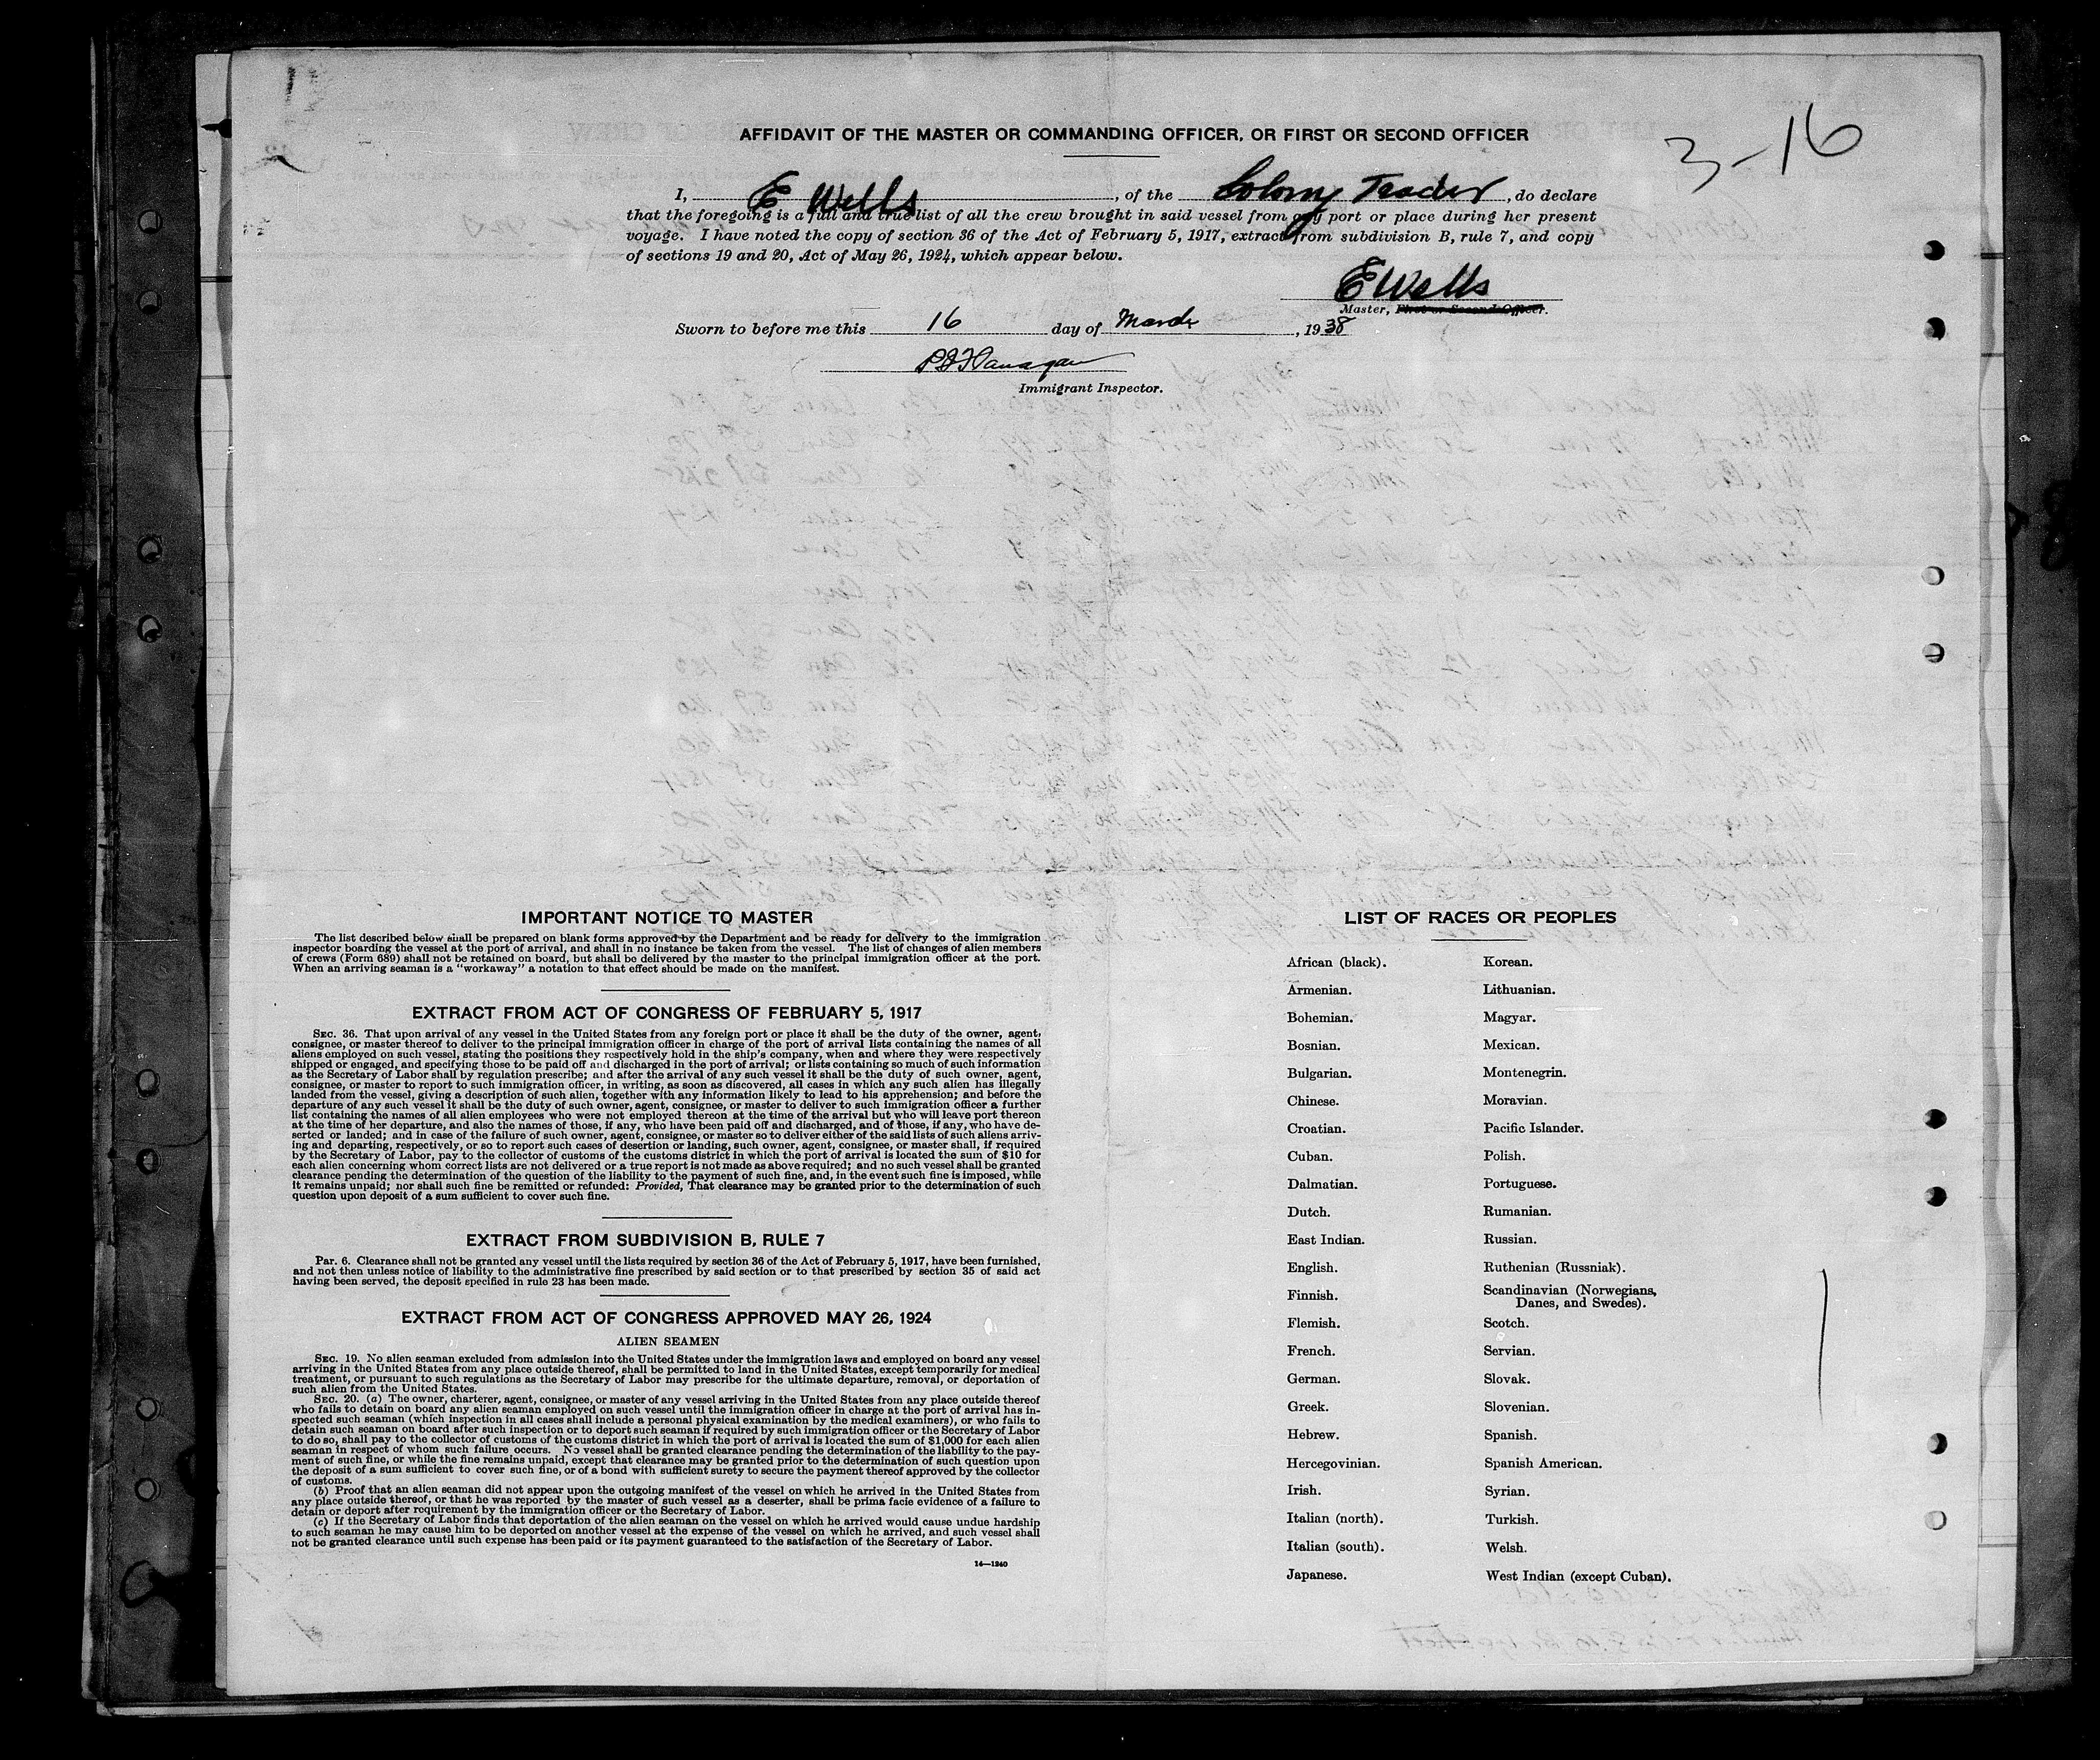 AFFIDAVIT OF THE MASTER OR COMMANDING OFFICER, OR FIRST OR SECOND OFFICER
3-16
I, E Wells, of the Colony Trader, do declare
that the foregoing is a full and true list of all the crew brought in said vessel from any port or place during her present
voyage. I have noted the copy of section 36 of the Act of February 5, 1917, extract from subdivision B, rule 7, and copy
of sections 19 and 20, Act of May 26, 1924, which appear below.
E Wells
Master, First or Second Officer.
Sworn to before me this 16 day of March, 1938
Flanagan
Immigrant Inspector.
IMPORTANT NOTICE TO MASTER
The list described below shall be prepared on blank forms approved by the Department and be ready for delivery to the immigration
inspector boarding the vessel at the port of arrival, and shall in no instance be taken from the vessel. The list of changes of alien members
of crews (Form 689) shall not be retained on board, but shall be delivered by the master to the principal immigration officer at the port.
When an arriving seaman is a "workaway" a notation to that effect should be made on the manifest.
EXTRACT FROM ACT OF CONGRESS OF FEBRUARY 5, 1917
SEC. 36. That upon arrival of any vessel in the United States from any foreign port or place it shall be the duty of the owner, agent,
consignee, or master thereof to deliver to the principal immigration officer in charge of the port of arrival lists containing the names of all
aliens employed on such vessel, stating the positions they respectively hold in the ship's company, when and where they were respectively
shipped or engaged, and specifying those to be paid off and discharged in the port of arrival; or lists containing so much of such information
as the Secretary of Labor shall by regulation prescribe; and after the arrival of any such vessel it shall be the duty of such owner, agent,
consignee, or master to report to such immigration officer, in writing, as soon as discovered, all cases in which any such alien has illegally
landed from the vessel, giving a description of such alien, together with any information likely to lead to his apprehension; and before the
departure of any such vessel it shall be the duty of such owner, agent, consignee, or master to deliver to such immigration officer a further
list containing the names of all alien employees who were not employed thereon at the time of the arrival but who will leave port thereon
at the time of her departure, and also the names of those, if any, who have been paid off and discharged, and of those, if any, who have de-
serted or landed; and in case of the failure of such owner, agent, consignee, or master so to deliver either of the said lists of such aliens arriv-
ing and departing, respectively, or so to report such cases of desertion or landing, such owner, agent, consignee, or master shall, if required
by the Secretary of Labor, pay to the collector of customs of the customs district in which the port of arrival is located the sum of $10 for
each alien concerning whom correct lists are not delivered or a true report is not made as above required; and no such vessel shall be granted
clearance pending the determination of the question of the liability to the payment of such fine, and, in the event such fine is imposed, while
it remains unpaid; nor shall such fine be remitted or refunded: Provided, That clearance may be granted prior to the determination of such
question upon deposit of a sum sufficient to cover such fine.
EXTRACT FROM SUBDIVISION B, RULE 7
Par. 6. Clearance shall not be granted any vessel until the lists required by section 36 of the Act of February 5, 1917, have been furnished,
and not then unless notice of liability to the administrative fine prescribed by said section or to that prescribed by section 35 of said act
having been served, the deposit specified in rule 23 has been made.
EXTRACT FROM ACT OF CONGRESS APPROVED MAY 26, 1924
ALIEN SEAMEN
SEC. 19. No alien seaman excluded from admission into the United States under the immigration laws and employed on board any vessel
arriving in the United States from any place outside thereof, shall be permitted to land in the United States, except temporarily for medical
treatment, or pursuant to such regulations as the Secretary of Labor may prescribe for the ultimate departure, removal, or deportation of
such alien from the United States.
SEC. 20. (a) The owner, charterer, agent, consignee, or master of any vessel arriving in the United States from any place outside thereof
who fails to detain on board any alien seaman employed on such vessel until the immigration officer in charge at the port of arrival has in-
spected such seaman (which inspection in all cases shall include a personal physical examination by the medical examiners), or who fails to
detain such seaman on board after such inspection or to deport such seaman if required by such immigration officer or the Secretary of Labor
to do so, shall pay to the collector of customs of the customs district in which the port of arrival is located the sum of $1,000 for each alien
seaman in respect of whom such failure occurs. No vessel shall be granted clearance pending the determination of the liability to the pay-
ment of such fine, or while the fine remains unpaid, except that clearance may be granted prior to the determination of such question upon
the deposit of a sum sufficient to cover such fine, or of a bond with sufficient surety to secure the payment thereof approved by the collector
of customs.
(b) Proof that an alien seaman did not appear upon the outgoing manifest of the vessel on which he arrived in the United States from
any place outside thereof, or that he was reported by the master of such vessel as a deserter, shall be prima facie evidence of a failure to
detain or deport after requirement by the immigration officer or the Secretary of Labor.
(c) If the Secretary of Labor finds that deportation of the alien seaman on the vessel on which he arrived would cause undue hardship
to such seaman he may cause him to be deported on another vessel at the expense of the vessel on which he arrived, and such vessel shall
not be granted clearance until such expense has been paid or its payment guaranteed to the satisfaction of the Secretary of Labor.
14—1240
LIST OF RACES OR PEOPLES
African (black). Korean.
Armenian. Lithuanian.
Bohemian. Magyar.
Bosnian. Mexican.
Bulgarian. Montenegrin.
Chinese. Moravian.
Croatian. Pacific Islander.
Cuban. Polish.
Dalmatian. Portuguese.
Dutch. Rumanian.
East Indian. Russian.
English. Ruthenian (Russniak).
Finnish. Scandinavian (Norwegians,
Danes, and Swedes).
Flemish. Scotch.
French. Servian.
German. Slovak.
Greek. Slovenian.
Hebrew. Spanish.
Hercegovinian. Spanish American.
Irish. Syrian.
Italian (north). Turkish.
Italian (south). Welsh.
Japanese. West Indian (except Cuban).